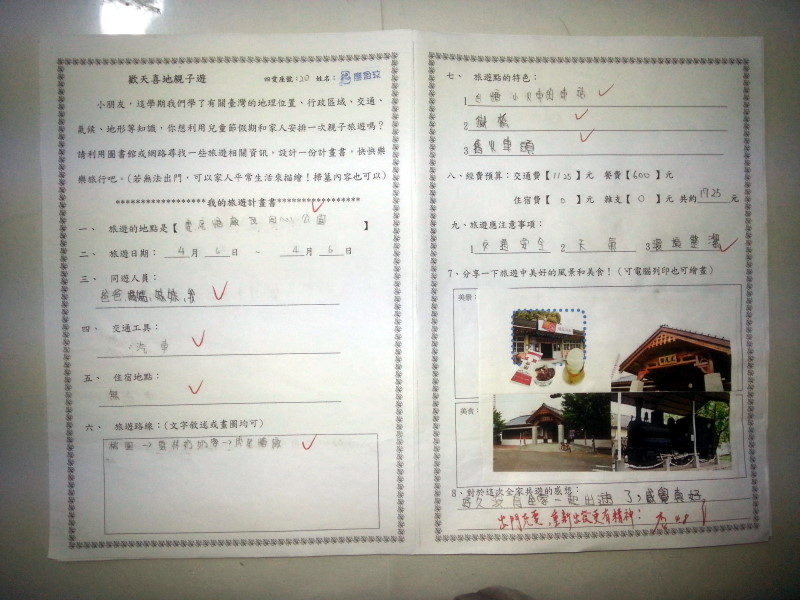 歡天喜地親子遊 四 座號:20 姓名:
小朋友,這學期我們學了有關臺灣的地理位置、行政區域、交通、
氣候、地形等知識,你想利用兒童節假期和家人安排一次親子旅遊嗎?
請利用圖書館或網路尋找一些旅遊相關資訊,設計一份計畫書,快快樂
樂旅行吧。(若無法出門,可以家人平常生活來描繪!掃墓內容也可以)
我的旅遊計畫書
一、 旅遊的地點是【 虎尾糖廠 公園 】
二、 旅遊日期: 4 月 6 日 ~ 4 月 6 日
三、 同遊人員:
爸爸,媽媽,妹妹,我
四、 交通工具:
汽車
五、 住宿地點:
無
六、 旅遊路線:(文字敘述或畫圖均可)
桃園->雲林奶奶家->虎尾糖廠
七、 旅遊點的特色:
1 台糖小火車
2 鐵橋
3 舊火車頭
八、經費預算:交通費【1125】元 餐費【600】元
住宿費【 0 】元 雜支【 0 】元 共約1725元
九、旅遊應注意事項:
1 交通安全 2 天氣 3 環境整潔
7、分享一下旅遊中美好的風景和美食!(可電腦列印也可繪畫)
美景:
美食:
8、對於這次全家共遊的感想:
好久沒有全家一起出遊了,感覺真好。
出門充電,重新出發更有精神!